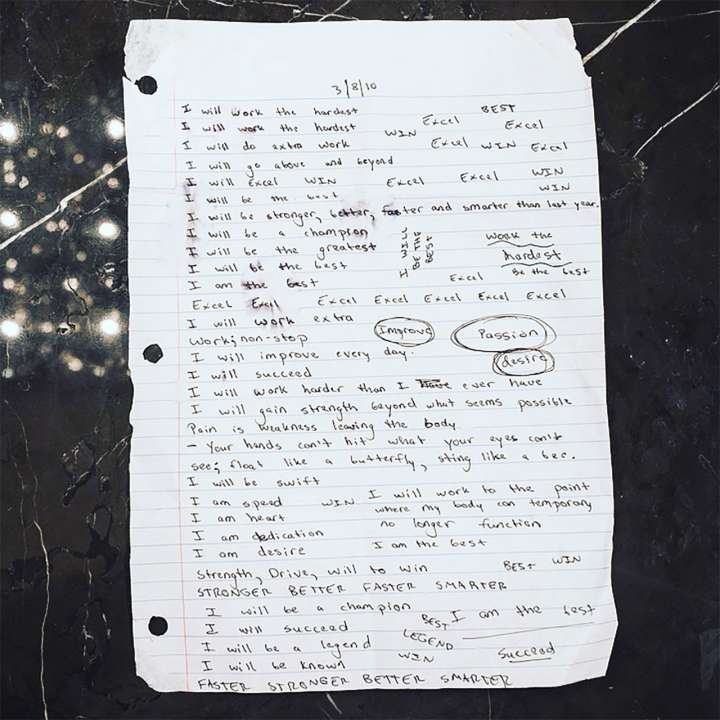 3/8/10
I will work the hardest BEST
I will work the hardest WIN Excel Excel
I will do extra work Excel WIN Excel
I will go above and beyond
I will Excel WIN Excel Excel WIN
I will be the best WIN
I will be stronger, better, faster and smarter than last year.
I will be a champion
I will be the greatest
I will be the best
I am the best
I WILL
BE THE
BEST
Work the
hardest
Be the best
Excel
Excel Excel Excel Excel Excel Excel Excel
I will work extra
Work; non-stop
Improve Passion
I will improve every day.
desire
I will succeed
I will work harder than I have ever have
I will gain strength beyond what seems possible
Pain is weakness leaving the body
- Your hands can't hit what your eyes can't
see; float like a butterfly, sting like a bee.
I will be swift
I am speed WIN
I am heart
I am dedication
I am desire
I will work to the point
where my body can temporary
no longer function
I am the best
Strength, Drive, will to win BEST WIN
STRONGER BETTER FASTER SMARTER
I will be a champion
I will succeed BEST I am the best
I will be a legend LEGEND
I will be known WIN Succeed
FASTER STRONGER BETTER SMARTER